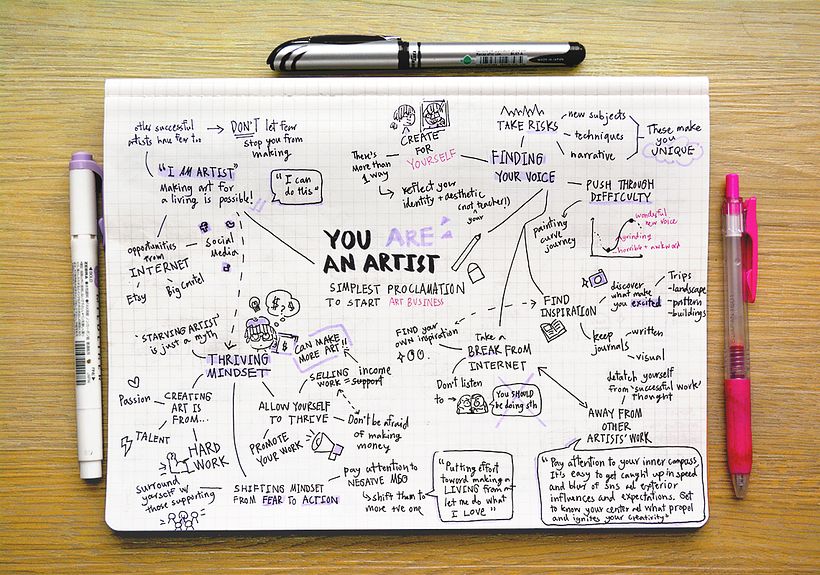 other successful
artists have fear too
DON'T let fear
stop you from
making
"I AM ARTIST"
Making art for
a living is possible!
"I can
do this"
opportunities
from
INTERNET
Social
Media
Etsy
Big Cartel
CREATE
FOR
YOURSELF
There's
more than
1 way
reflect your
identity + aesthetic
(not teacher!)
your
TAKE RISKS
new subjects
techniques
narrative
These make
you
UNIQUE
FINDING
YOUR VOICE
PUSH THROUGH
DIFFICULTY
painting
curve
journey
wonderful
new voice
grinding
horrible + awkward
YOU ARE
AN ARTIST
SIMPLEST PROCLAMATION
TO START ART BUSINESS
FIND
INSPIRATION
discover
what make
you excited
Trips
-landscape
-pattern
-buildings
keep
journals
written
visual
FIND your
own inspiration
Take a
BREAK FROM
INTERNET
Don't listen
to
YOU SHOULD
be doing sth
detatch yourself
from 'successful work'
thought
AWAY FROM
OTHER
ARTISTS' WORK
"Pay attention to your inner compass.
It's easy to get caught up in speed
and blur of sns ad exterior
influences and expectations. Get
to know your center ad what propel
and ignites your creativity"
'STARVING ARTIST'
is just a myth
THRIVING
MINDSET
CAN MAKE
MORE ART!!
SELLING income
WORK = support
ALLOW YOURSELF
TO THRIVE
Don't be afraid
of making
money
PROMOTE
YOUR WORK
CREATING
ART IS
FROM...
Passion
TALENT
HARD
WORK
Surround
yourself w
those supporting
SHIFTING MINDSET
FROM FEAR TO ACTION
pay attention to
NEGATIVE MSG
shift than to
more +ve one
"Putting effort
toward making a
LIVING from art
let me do what
I LOVE"